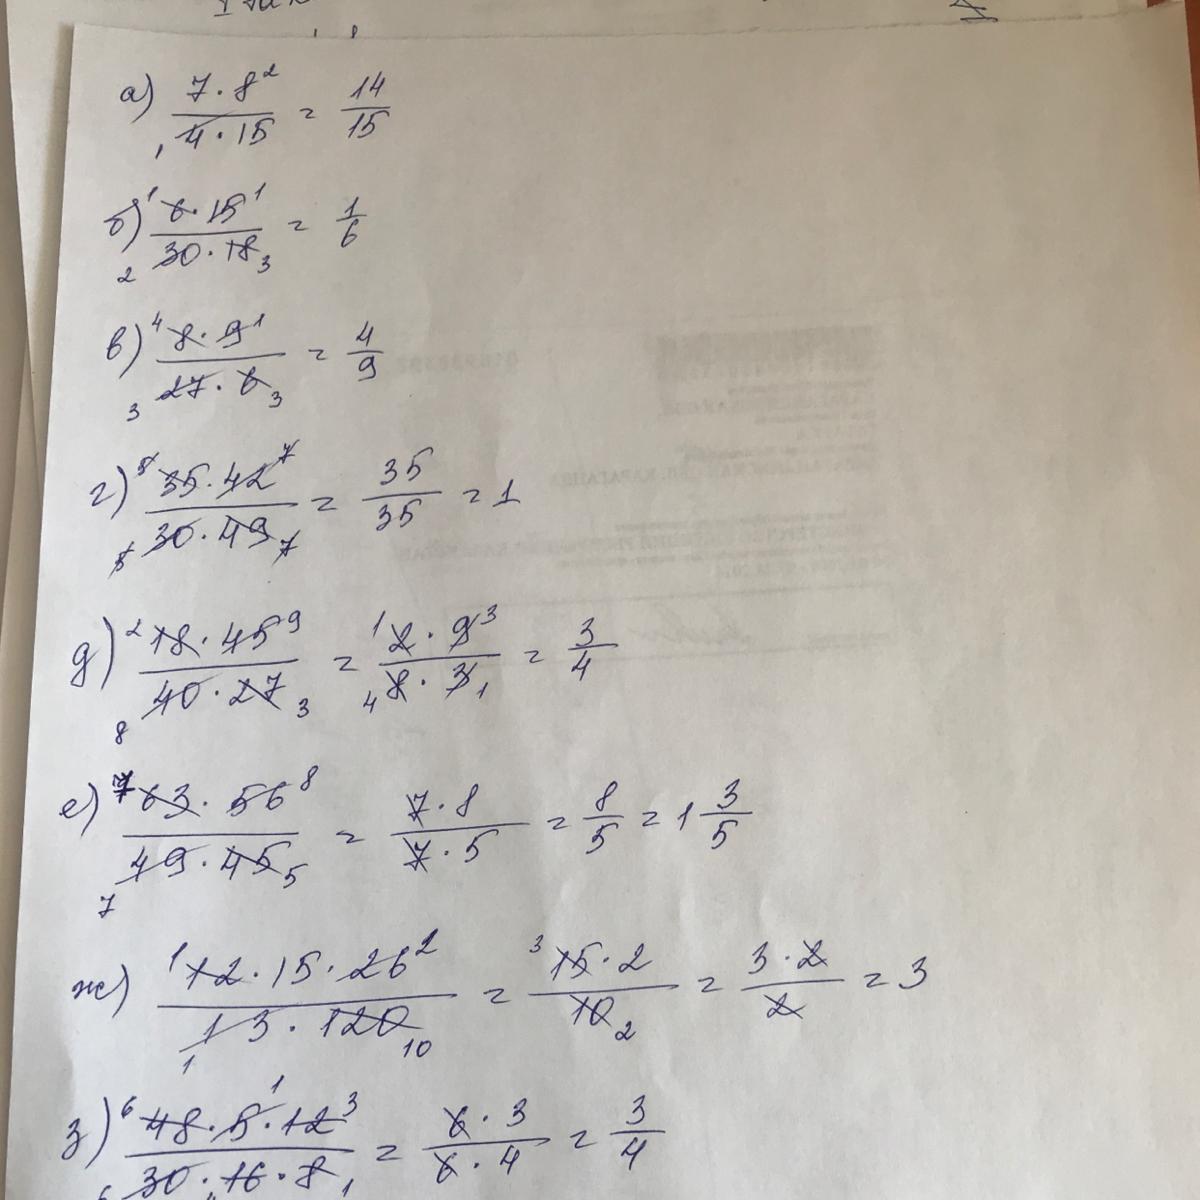 а) 7·8²/₁4·15 = 14/15
б) ¹6·15¹/₂30·18₃ = 1/6
в) ⁴8·9¹/₃27·6₃ = 4/9
г) ⁵35·42⁷/₅30·49₇ = 35/35 = 1
д) ²18·45⁹/₈40·27₃ = ¹2·9³/₄8·3₁ = 3/4
е) ⁷63·56⁸/₇49·45₅ = 7·8/7·5 = 8/5 = 1 3/5
ж) ¹12·15·26²/₁13·120₁₀ = ³15·2/10₂ = 3·2/2 = 3
з) ⁶48·5¹·12³/₆30·16·8₁ = 6·3/6·4 = 3/4